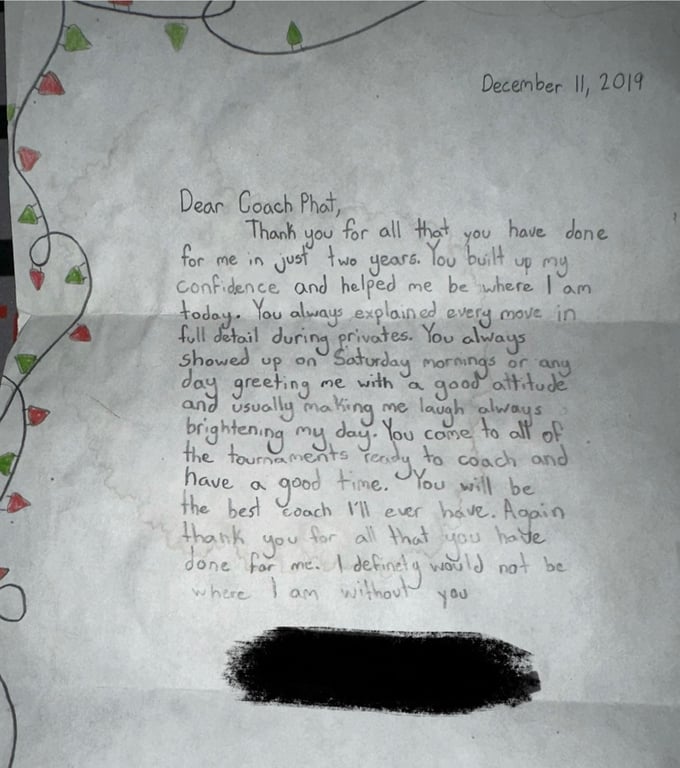 December 11, 2019
Dear Coach Phat,
Thank you for all that you have done
for me in just two years. You built up my
confidence and helped me be where I am
today. You always explained every move in
full detail during privates. You always
showed up on Saturday mornings or any
day greeting me with a good attitude
and usually making me laugh always
brightening my day. You come to all of
the tournaments ready to coach and
have a good time. You will be
the best coach I'll ever have. Again
thank you for all that you have
done for me. I definety would not be
where I am without you